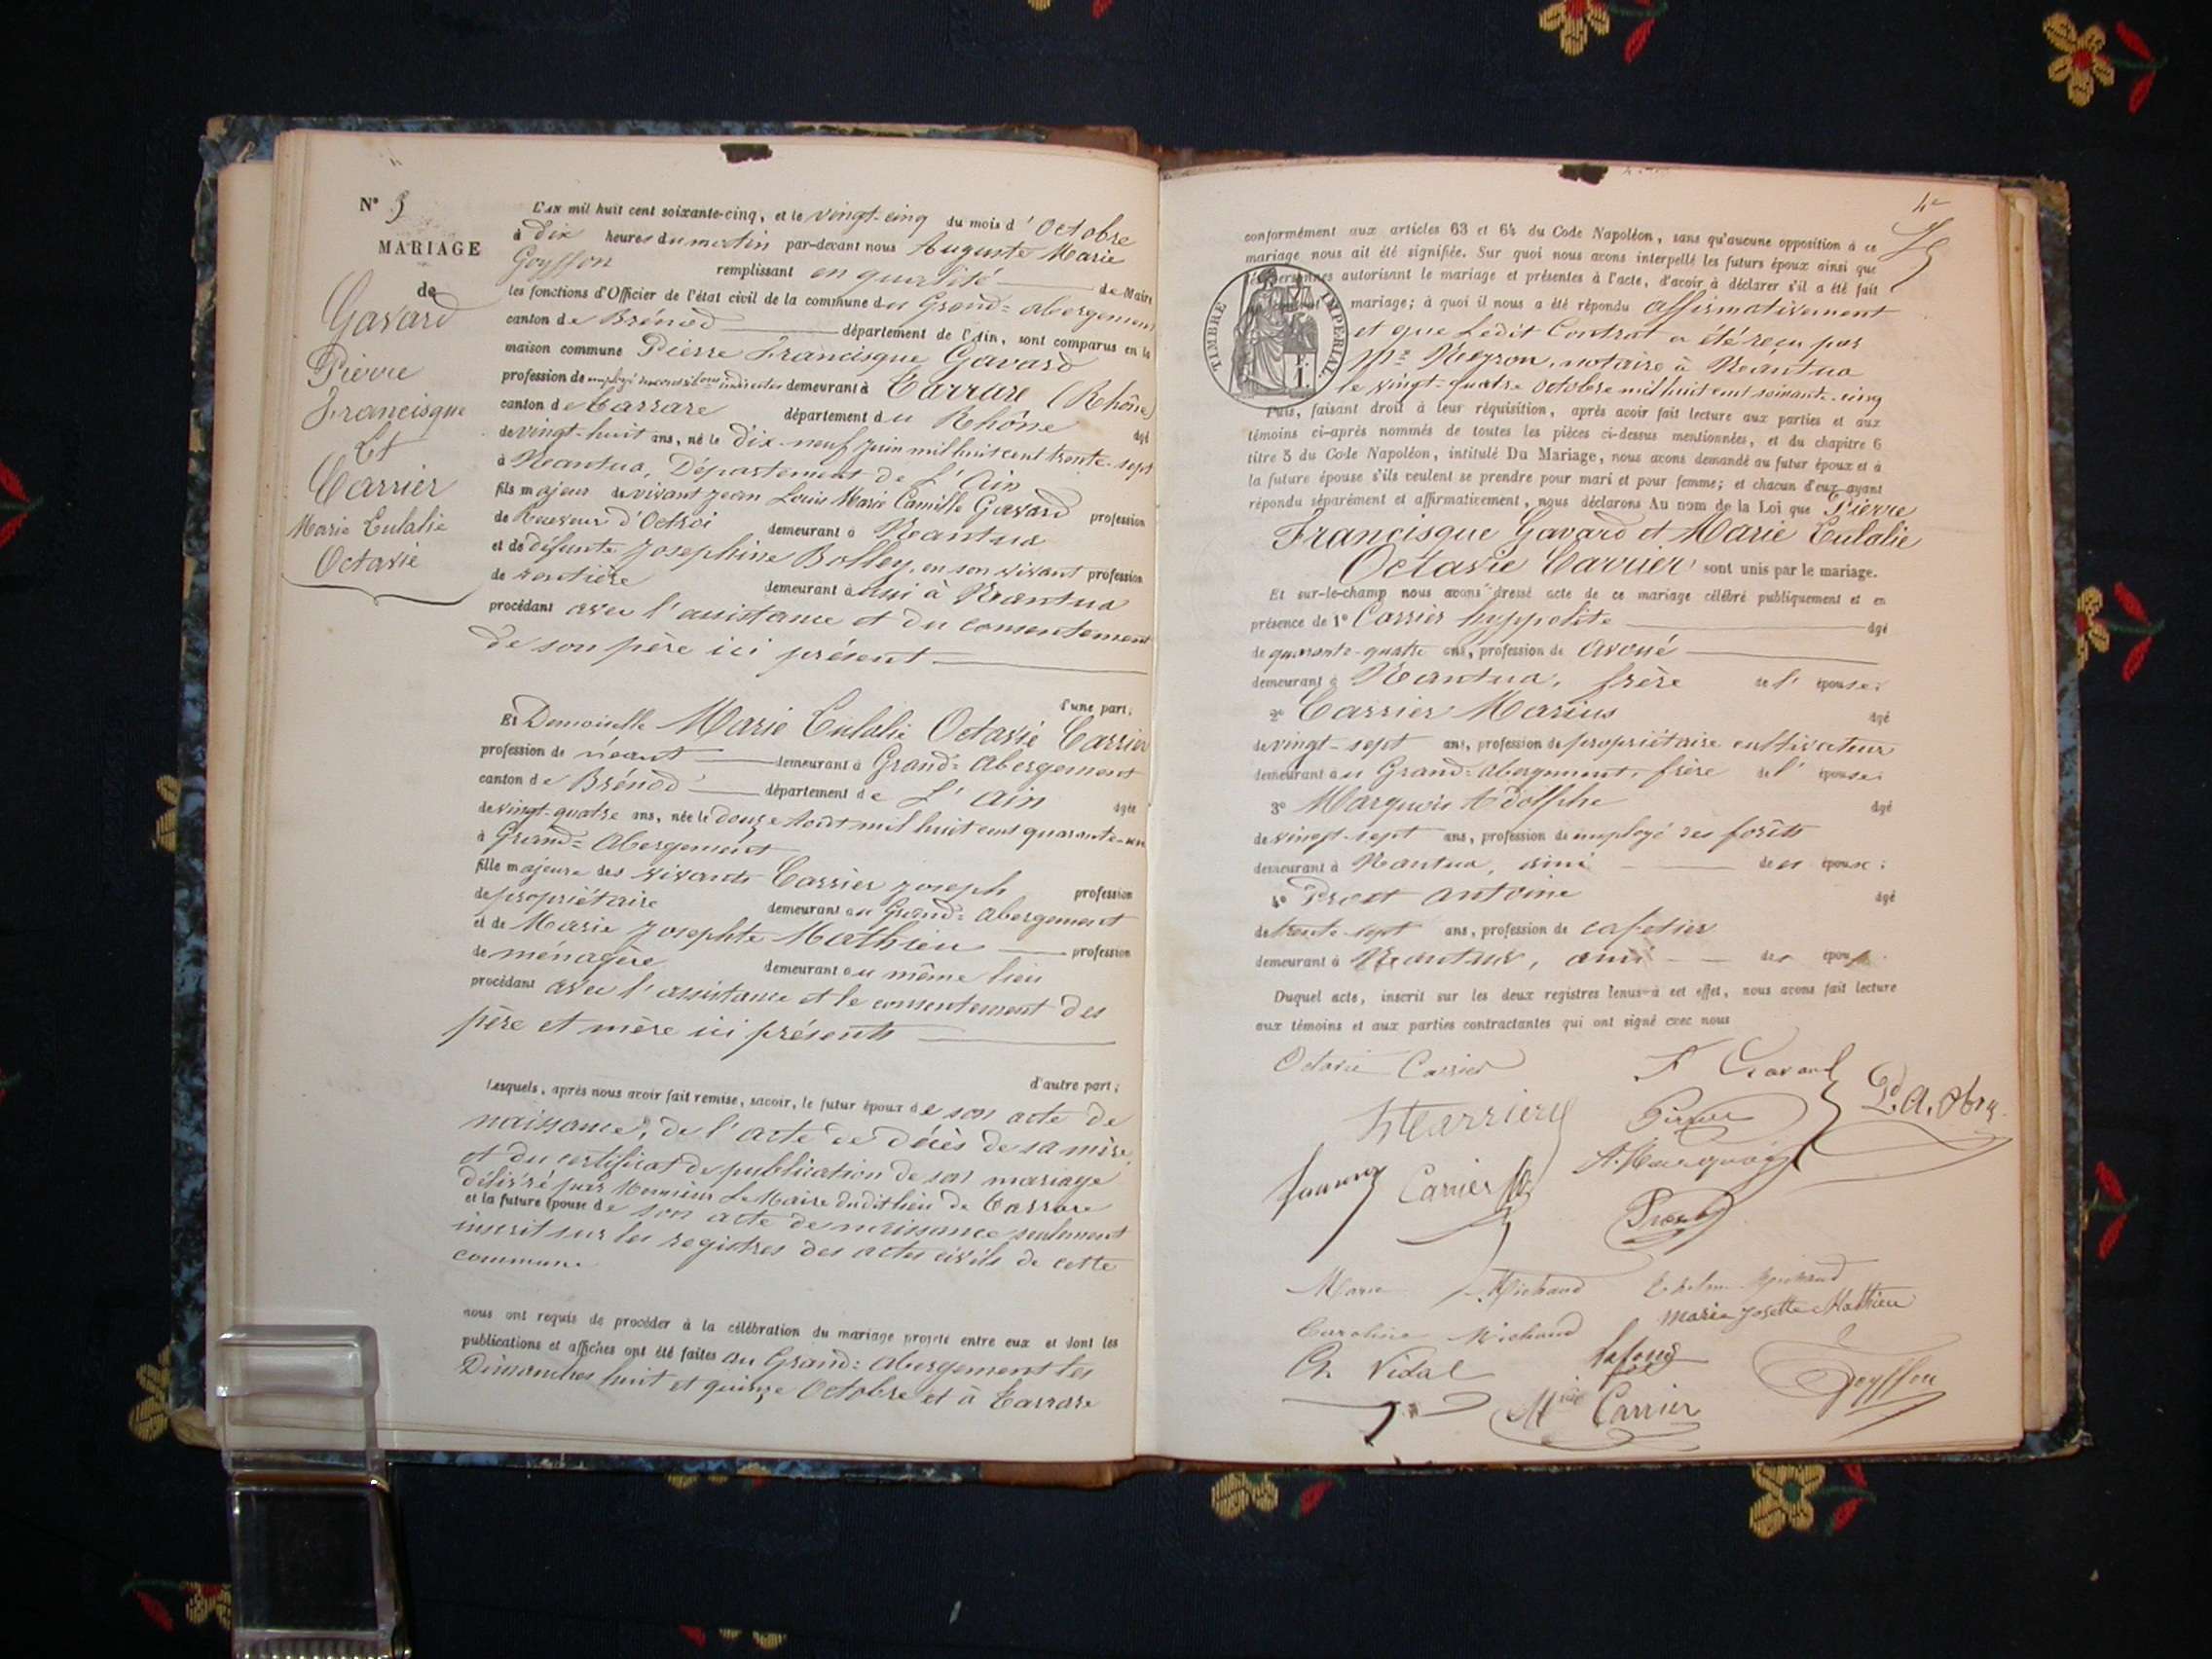 N° 3
MARIAGE
de
Gavard
Pierre
Francisque
Et
Carrier
Marie Eulalie
Octavie
L'an mil huit cent soixante-cinq, et le vingt-cinq du mois d'Octobre
à dix heures du matin par-devant nous Auguste Marie
Goyffon remplissant en qualité de Maire
les fonctions d'Officier de l'état civil de la commune du Grand=abergement
canton de Brénod département de l'Ain, sont comparus en la
maison commune Pierre Francisque Gavard
profession de employé indirectes demeurant à Tarrare (Rhône)
canton de Tarrare département du Rhône âgé
de vingt-huit ans, né le dix-neuf juin mil huit cent trente-sept
à Nantua, Département de L'Ain
fils majeur de vivant Jean Louis Marie Camille Gavard profession
de Receveur d'Octroi demeurant à Nantua
et de défunte Josephine Bolley, en son vivant profession
de rentière demeurant aussi à Nantua
procédant avec l'assistance et du consentement
de son père ici présent
d'une part;
Et Demoiselle Marie Eulalie Octavie Carrier
profession de néant demeurant à Grand=abergement
canton de Brénod département de L'Ain âgée
de vingt-quatre ans, née le douze Août mil huit cent quarante-un
à Grand=Abergement
fille majeure des vivants Carrier Joseph profession
de propriétaire demeurant au Grand=abergement
et de Marie Josephte Mathieu profession
de ménagère demeurant au même lieu
procédant avec l'assistance et le consentement des
père et mère ici présents
d'autre part;
Lesquels, après nous avoir fait remise, savoir, le futur époux de son acte de
naissance, de l'acte de décès de sa mère
et du certificat de publication de son mariage
délivré par Monsieur Le Maire dudit lieu de Tarrare
et la future épouse de son acte de naissance seulement
inscrit sur les registres des actes civils de cette
commune
nous ont requis de procéder à la célébration du mariage projeté entre eux et dont les
publications et affiches ont été faites au Grand=abergement les
Dimanches huit et quinze Octobre et à Tarrare
4e
conformément aux articles 63 et 64 du Code Napoléon, sans qu'aucune opposition à ce
mariage nous ait été signifiée. Sur quoi nous avons interpellé les futurs époux ainsi que
les personnes autorisant le mariage et présentes à l'acte, d'avoir à déclarer s'il a été fait
mariage; à quoi il nous a été répondu affirmativement
TIMBRE IMPERIAL
1 F.
et que Ledit Contrat a été reçu par
Me Neyron, notaire à Nantua
le vingt-quatre Octobre mil huit cent soixante-cinq
Puis, faisant droit à leur réquisition, après avoir fait lecture aux parties et aux
témoins ci-après nommés de toutes les pièces ci-dessus mentionnées, et du chapitre 6
titre 5 du Code Napoléon, intitulé Du Mariage, nous avons demandé au futur époux et à
la future épouse s'ils veulent se prendre pour mari et pour femme; et chacun d'eux ayant
répondu séparément et affirmativement, nous déclarons Au nom de la Loi que Pierre
Francisque Gavard et Marie Eulalie
Octavie Carrier sont unis par le mariage.
Et sur-le-champ nous avons dressé acte de ce mariage célébré publiquement et en
présence de 1° Carrier hyppolite âgé
de quarante-quatre ans, profession de avoué
demeurant à Nantua, frère de l'épouse;
2° Carrier Marius âgé
de vingt-sept ans, profession de propriétaire cultivateur
demeurant au Grand=abergement, frère de l'épouse;
3° Marquois Adolphe âgé
de vingt-sept ans, profession de employé des forêts
demeurant à Nantua, ami des époux;
4° Prost Antoine âgé
de trente-sept ans, profession de cafetier
demeurant à Nantua, ami des époux
Duquel acte, inscrit sur les deux registres tenus à cet effet, nous avons fait lecture
aux témoins et aux parties contractantes qui ont signé avec nous
Octavie Carrier
F Gavard
HCarrier
A. Marquois
Carrier
Prost
Marie Michaud
Michaud
Caroline Michaud
marie Josette Mathieu
Ch. Vidal
Lafond
Goyffon
Carrier